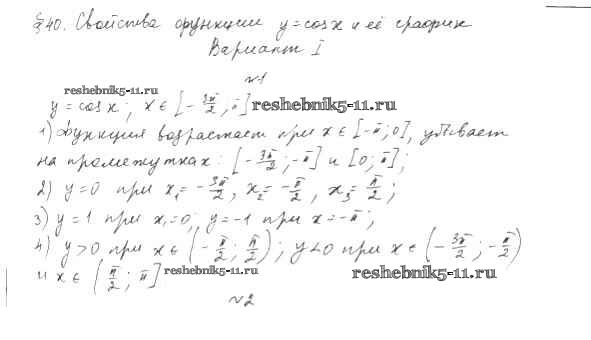 §40. Свойства функции y=cosx и её график
Вариант I
№1
reshebnik5-11.ru
y = cosx; x ∈ [-3π/2; π] reshebnik5-11.ru
1) Функция возрастает при x ∈ [-π; 0], убывает
на промежутках: [-3π/2; -π] и [0; π];
2) y=0 при x₁ = -3π/2, x₂ = -π/2, x₃ = π/2;
3) y=1 при x₁=0; y=-1 при x=-π;
4) y>0 при x ∈ (-π/2; π/2); y<0 при x ∈ (-3π/2; -π/2)
и x ∈ (π/2; π] reshebnik5-11.ru reshebnik5-11.ru
№2